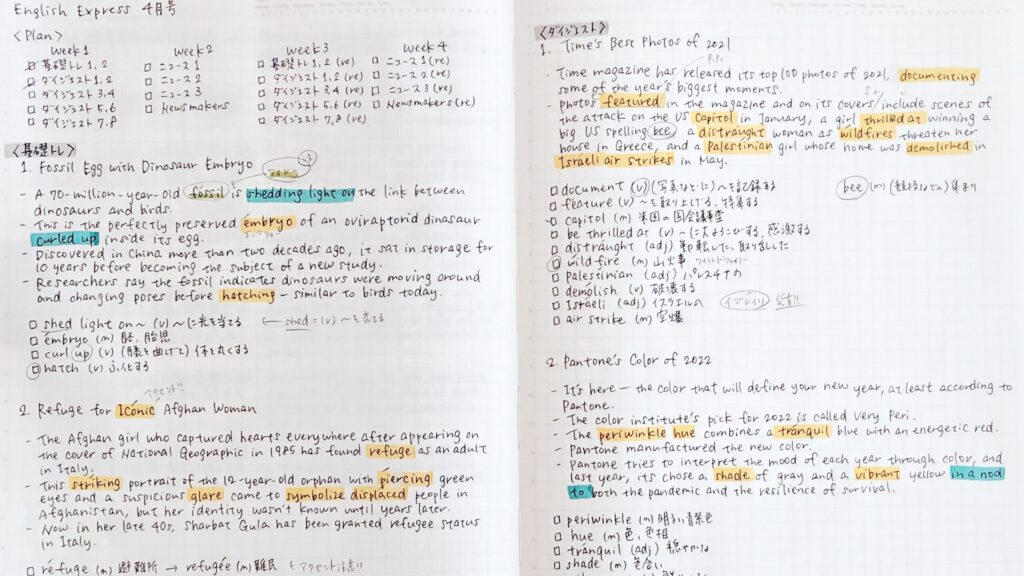 English Express 4月号
<Plan>
Week 1
基礎トレ 1, 2
ダイジェスト 1, 2
ダイジェスト 3, 4
ダイジェスト 5, 6
ダイジェスト 7, 8
Week 2
ニュース 1
ニュース 2
ニュース 3
Newsmakers
Week 3
基礎トレ 1, 2 (re)
ダイジェスト 1, 2 (re)
ダイジェスト 3, 4 (re)
ダイジェスト 5, 6 (re)
ダイジェスト 7, 8 (re)
Week 4
ニュース 1 (re)
ニュース 2 (re)
ニュース 3 (re)
Newsmakers (re)
<基礎トレ>
1. Fossil Egg with Dinosaur Embryo
- A 70-million-year-old fossil is shedding light on the link between
dinosaurs and birds.
- This is the perfectly preserved émbryo of an oviraptorid dinasaur
curled up inside its egg.
- Discovered in China more than two decades ago, it sat in storage for
10 years before becoming the subject of a new study.
- Researchers say the fossil indicates dinosaurs were moving around
and changing poses before hatching - similar to birds today.
shed light on~ (v) ~に光を当てる
← shed = (v) ~を当てる
émbryo (n) 胚, 胎児
curl up (v) (膝を曲げて) 体を丸くする
hatch (v) ふ化する
アクセント!!
2. Refuge for Icónic Afghan Woman
- The Afghan girl who captured hearts everywhere after appearing on
the cover of National Geographic in 1985 has found refuge as an adult
in Italy.
- This striking portrait of the 12-year-old orphan with piercing green
eyes and a suspicious glare came to symbolize displaced people in
Afghanistan, but her identity wasn't known until years later.
- Now in her late 40s, Sharbat Gula has been granted refugee status
in Italy.
réfuge (n) 避難所 → refugée (n) 難民 アクセント注意!!
<ダイジェスト>
1. Time's Best Photos of 2021
P.P.
- Time magazine has released its top 100 photos of 2021, documenting
some of the year's biggest moments.
S
- Photos featured in the magazine and on its covers / include scenes of
the attack on the US Capitol in January, a girl thrilled at winning a
big US spelling bee, a distraught woman as wildfires threaten her
house in Greece, and a Palestinian girl whose home was demolished in
Israeli air strikes in May.
document (v) (写真などに) ~を記録する
bee (n) 集まり
feature (v) ~を取り上げる, 特集する
capitol (n) 米国の国会議事堂
be thrilled at (v) ~に大よろこびする, 感激する
distraught (adj) 動転した, 取り乱した
wild fire (n) 山火事 ワイルドファイヤー
Palestinian (adj) パレスチナの
demolish (v) 破壊する
Israeli (adj) イスラエルの イズレイリ 発音
air strike (n) 空爆
2. Pantone's Color of 2022
- It's here — the color that will define your new year, at least according to
Pantone.
- The color institute's pick for 2022 is called Very Peri.
- The periwinkle hue combines a tránquil blue with an energetic red.
- Pantone manufactured the new color.
- Pantone tries to interpret the mood of each year through color, and
last year, its chose a shade of gray and a vibrant yellow in a nod
to both the pandemic and the resilience of survival.
periwinkle (n) 明るい青紫色
hue (n) 色, 色相
tránquil (adj) 穏やかな
shade (n) 色合い